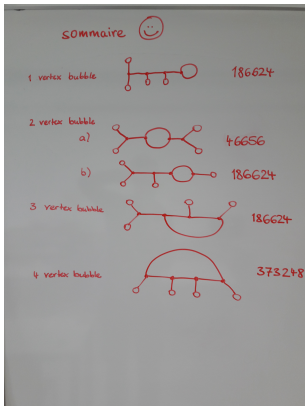 sommaire
1 vertex bubble 186624
2 vertex bubble
a) 46656
b) 186624
3 vertex bubble 186624
4 vertex bubble 373248